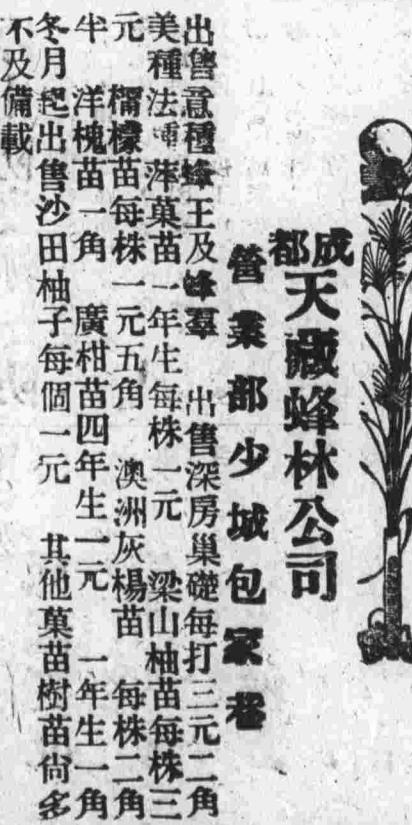 成都
天藏蜂林公司
營業部少城包家巷
出售意種蜂王及蜂羣　出售深房巢礎每打三元二角
美種法國萍菓苗一年生每株一元　梁山柚苗每株三
元　檸檬苗每株一元五角　澳洲灰楊苗　每株二角
半　洋槐苗一角　廣柑苗四年生一元　一年生一角
冬月起出售沙田柚子每個一元　其他菓苗樹苗尙多
不及備載